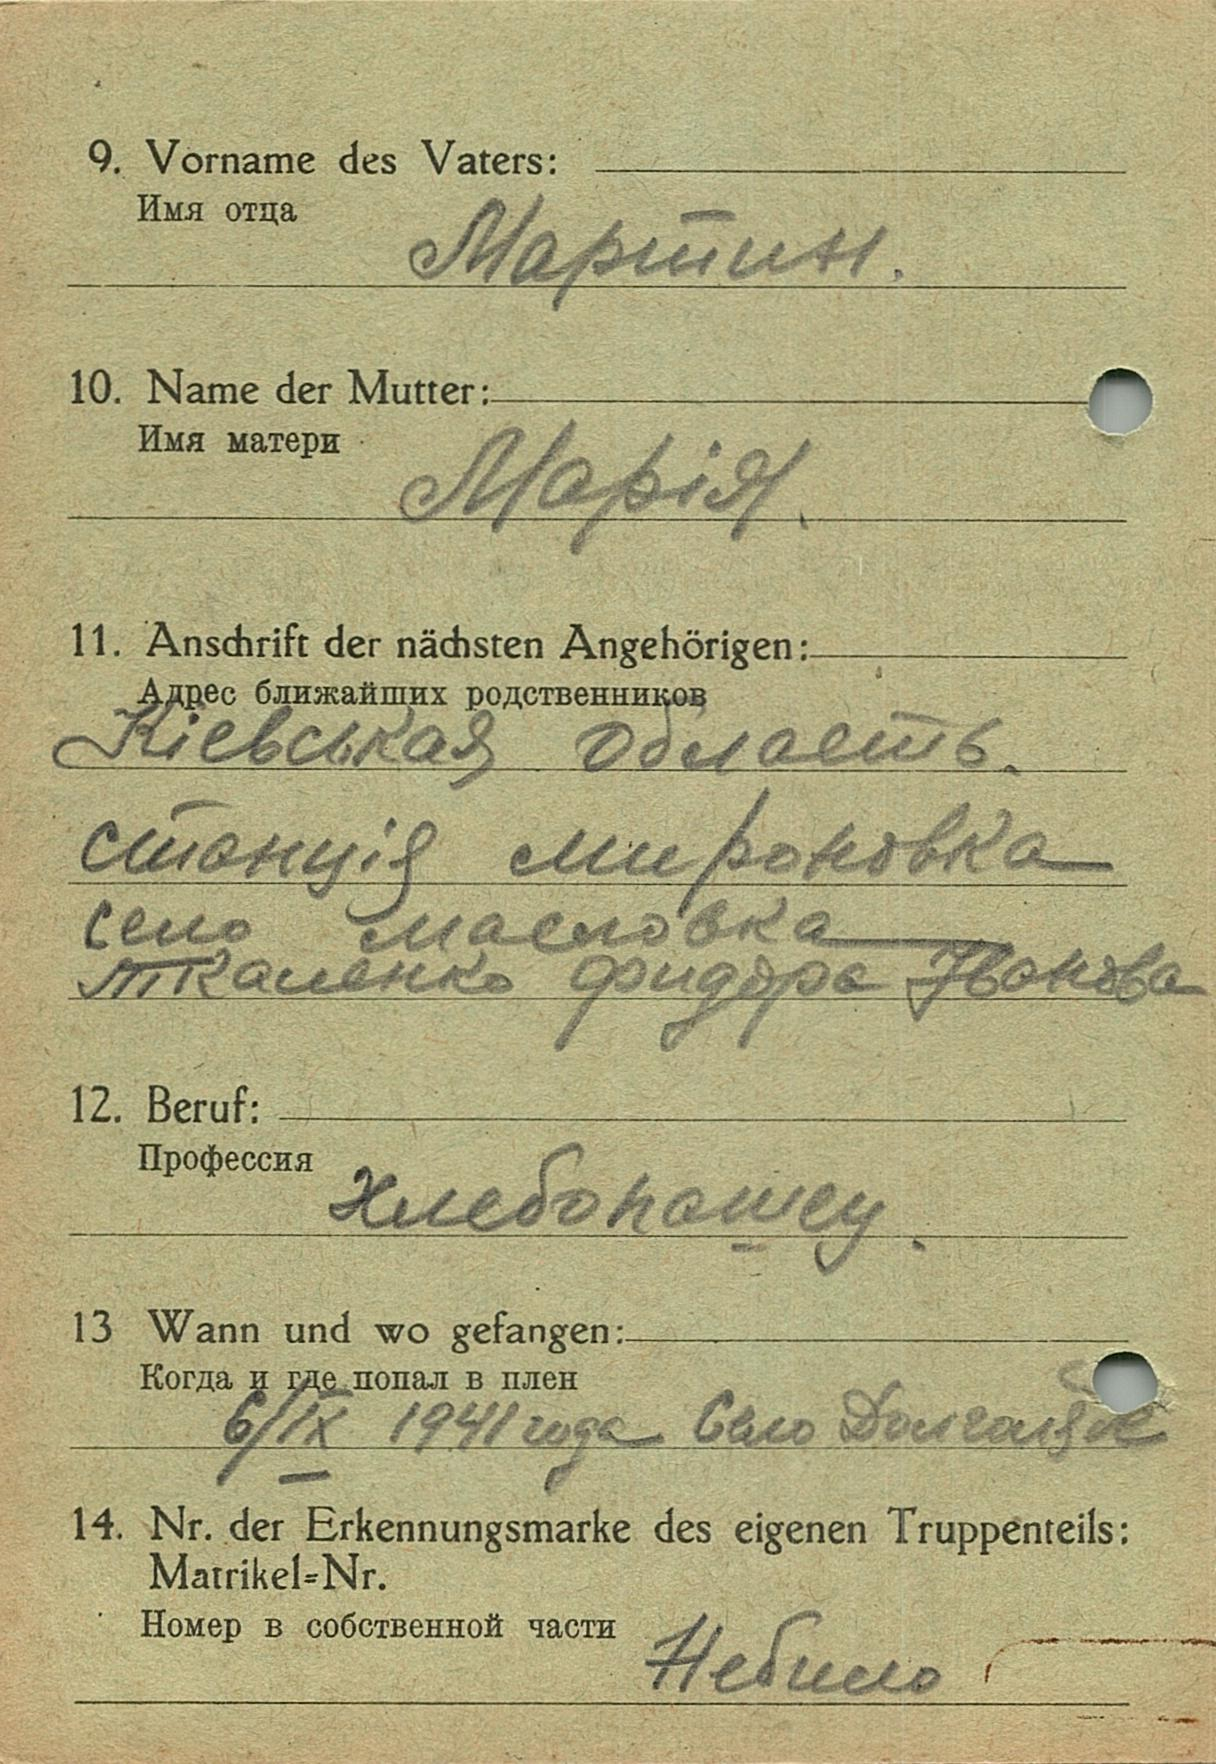 9. Vorname des Vaters:
Имя отца
Мартин.
10. Name der Mutter:
Имя матери
Марія.
11. Anschrift der nächsten Angehörigen:
Адрес ближайших родственников
Кіевськая область.
станція мироновка
село масловка
ткаленко фидора Ивонова
12. Beruf:
Профессия
Хлебопашец.
13 Wann und wo gefangen:
Когда и где попал в плен
6/IX 1941 года Село
14. Nr. der Erkennungsmarke des eigenen Truppenteils:
Matrikel=Nr.
Номер в собственной части
Небило